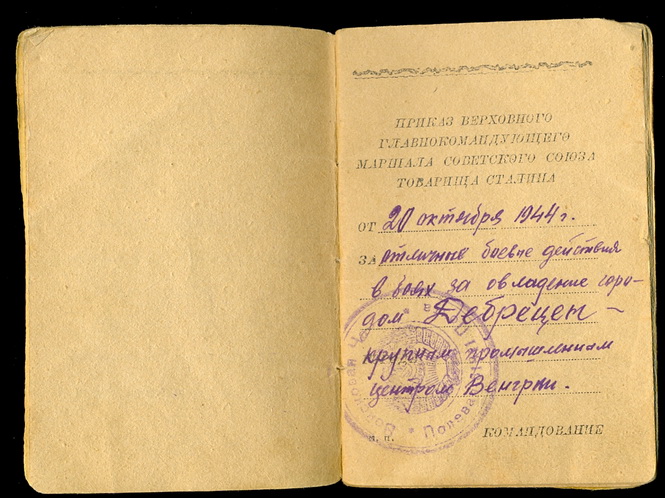 ПРИКАЗ ВЕРХОВНОГО
ГЛАВНОКОМАНДУЮЩЕГО
МАРШАЛА СОВЕТСКОГО СОЮЗА
ТОВАРИЩА СТАЛИНА
ОТ 20 октября 1944 г.
ЗА отличные боевые действия
в боях за овладение горо-
дом Дебрецен –
крупным промышленным
центром Венгрии.
м. п. КОМАНДОВАНИЕ
Войсковая
Полевая